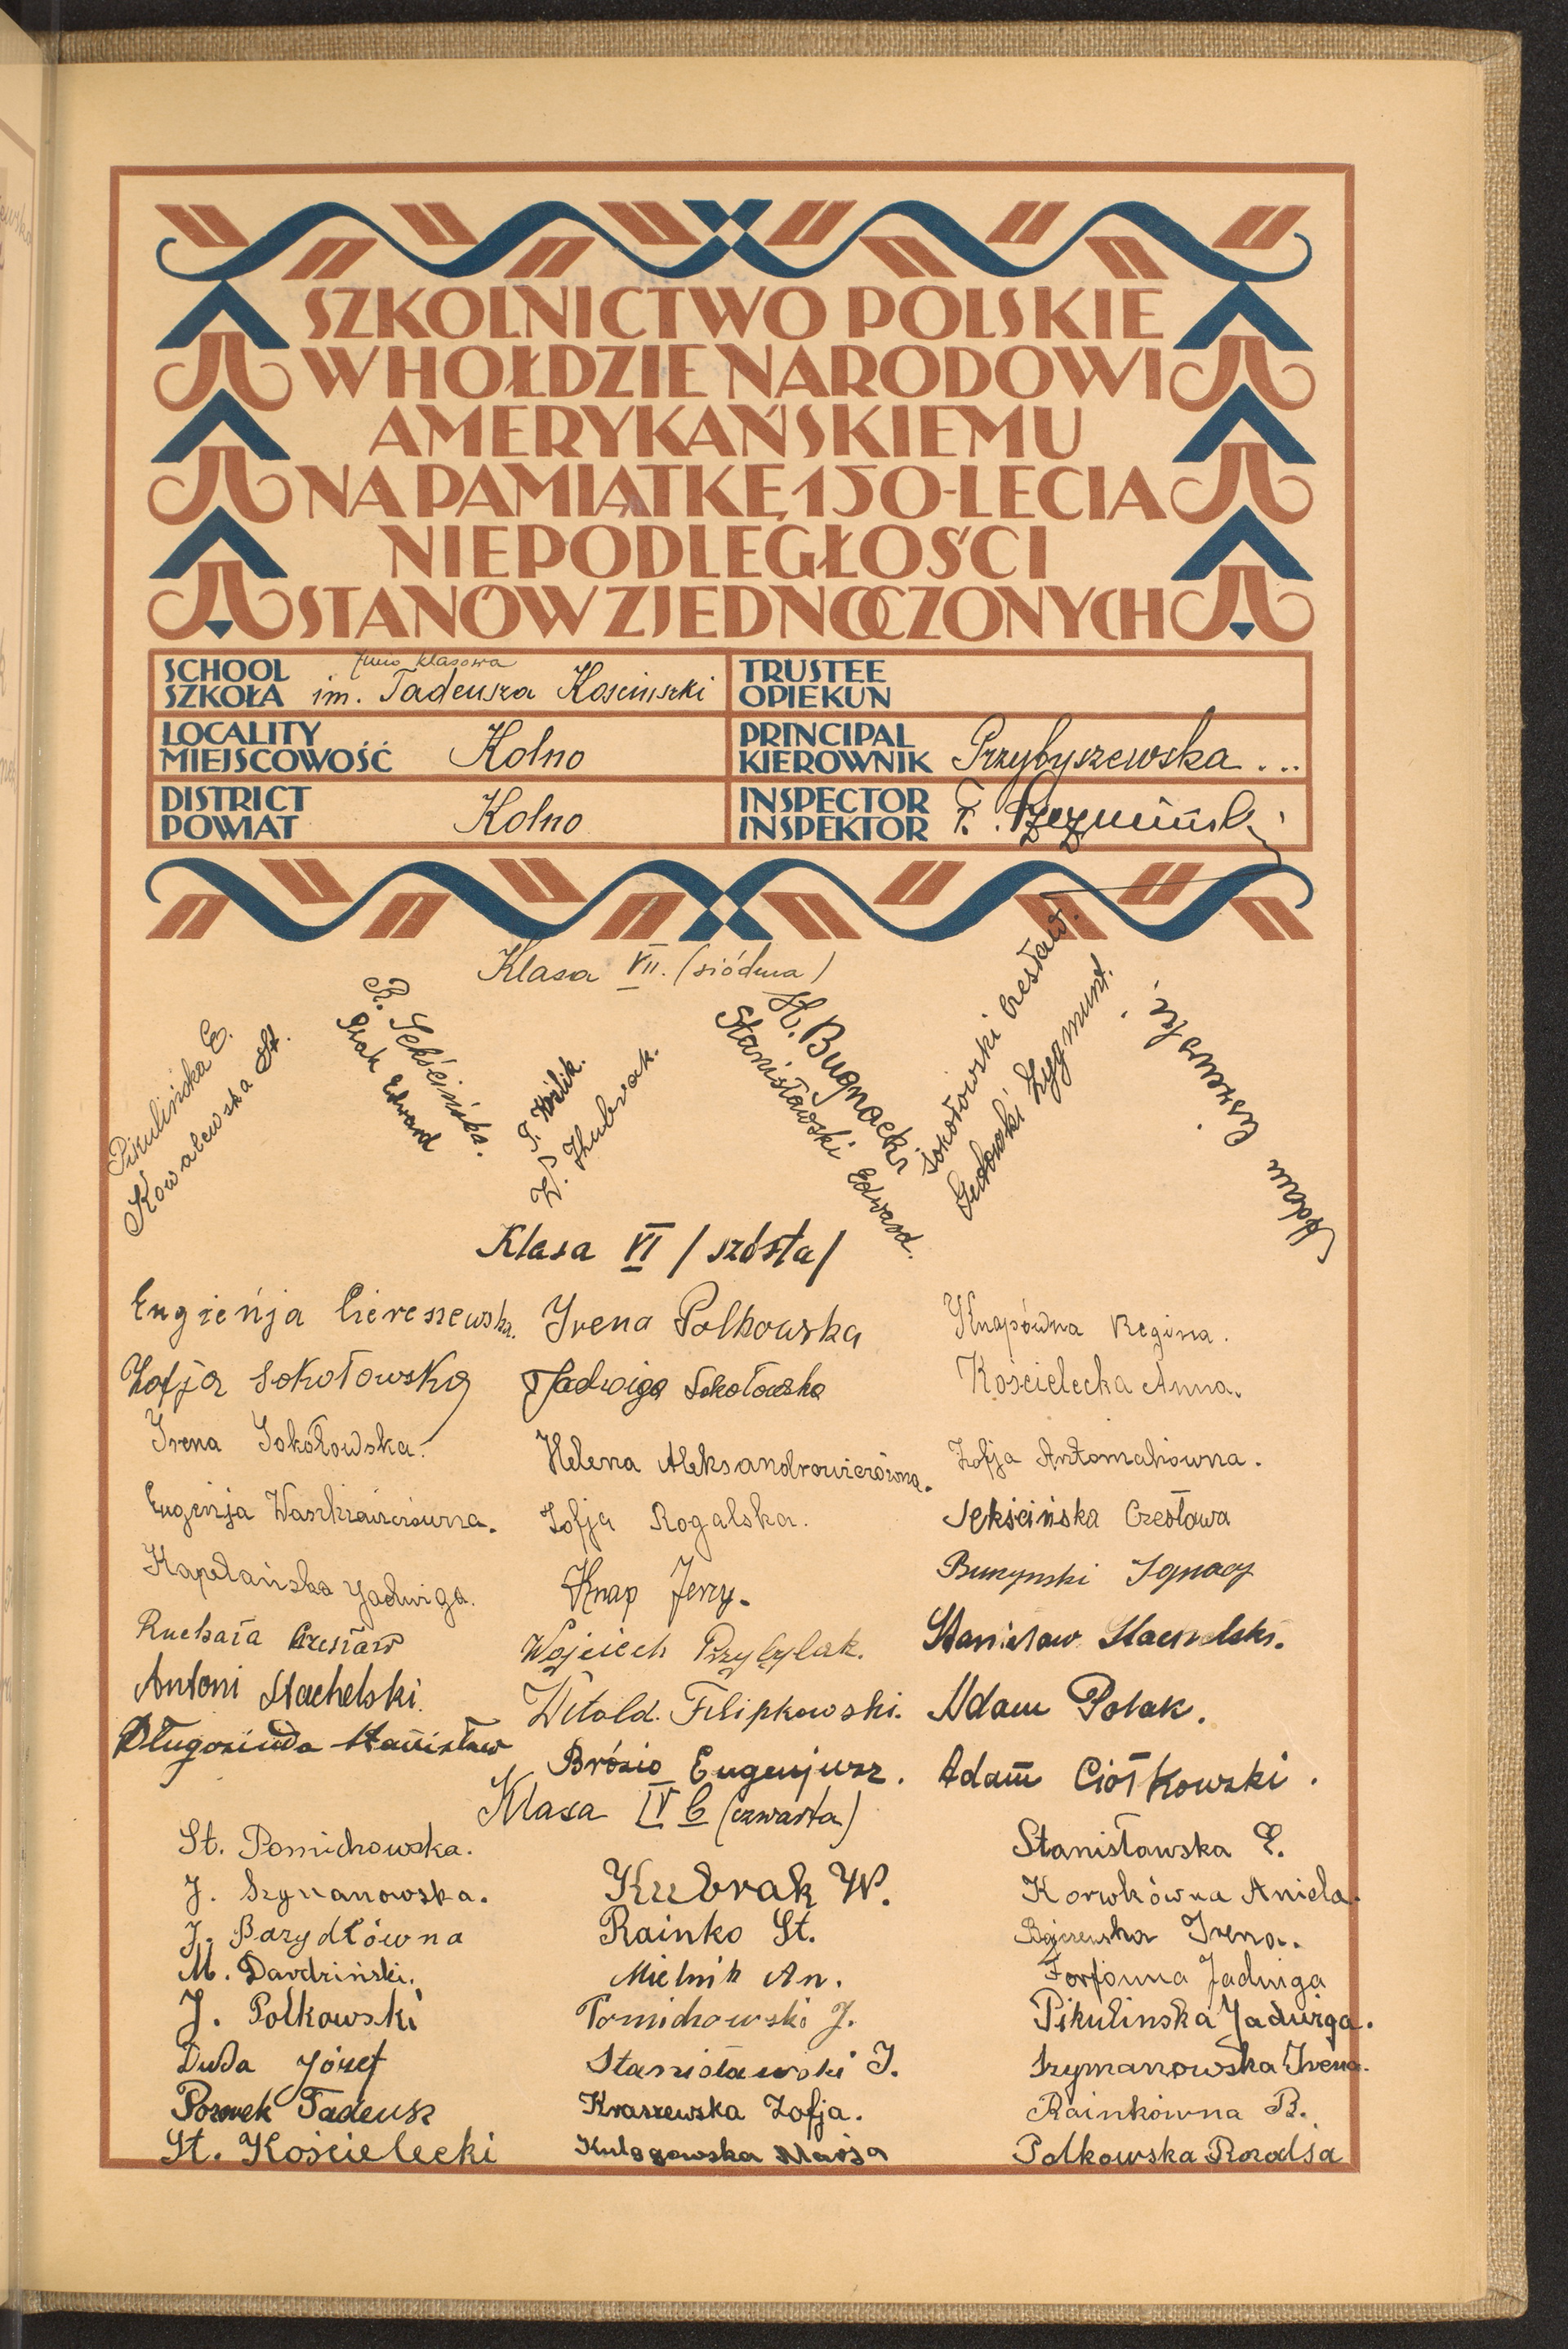 SZKOLNICTWO POLSKIE
W HOŁDZIE NARODOWI
AMERYKAŃSKIEMU
NA PAMIĄTKĘ 150-LECIA
NIEPODLEGŁOŚCI
STANÓW ZJEDNOCZONYCH
SCHOOL
SZKOŁA
klasowa
im. Tadeusza Kosciuszki
TRUSTEE
OPIEKUN
LOCALITY
MIEJSCOWOŚĆ
Kolno
PRINCIPAL
KIEROWNIK
Przybyszewska
DISTRICT
POWIAT
Kolno
INSPECTOR
INSPEKTOR
Klasa VII. (siódma)
Pikulińska E.
Kowalewska St.
R. Sekścińska.
Edward
W. Kubrak.
St. Bugnacki
Stanisławski Edward.
Sokołowski Czesław.
Gutowski Zygmunt.
Adam Ciszewski.
Klasa VI / szósta /
Eugieńja Ciereszewska.
Irena Polkowska
Knapówna Regina.
Zofja Sokołowska
Jadwiga Sokołowska
Kościelecka Anna.
Irena Sokołowska.
Helena Aleksandrowiczówna.
Zofja
Eugenja
Zofja Rogalska.
Sekścińska Czesława
Kapelańska Jadwiga.
Knap Jerzy.
Ignacy
Ruchała Czesław
Wojciech Przybylak.
Stanisław Stachelski.
Antoni Stachelski.
Witold. Filipkowski.
Adam Polak.
Stanisław
Brózio Eugenjusz.
Adam Ciołkowski.
Klasa IV b (czwarta)
St. Pomichowska.
Kubrak W.
Stanisławska E.
J. Szymanowska.
Rainko St.
Korwkówna Aniela.
J. Barydłówna
Mielnik An.
Irena.
M. Dawdziński.
Pomichowski J.
Jadwiga
J. Polkowski
Stanisławski J.
Pikulinska Jadwiga.
Duda Józef
Kraszewska Zofja.
Szymanowska Irena.
Tadeusz
Marja
Rainkówna B.
St. Kościelecki
Polkowska Rozalja